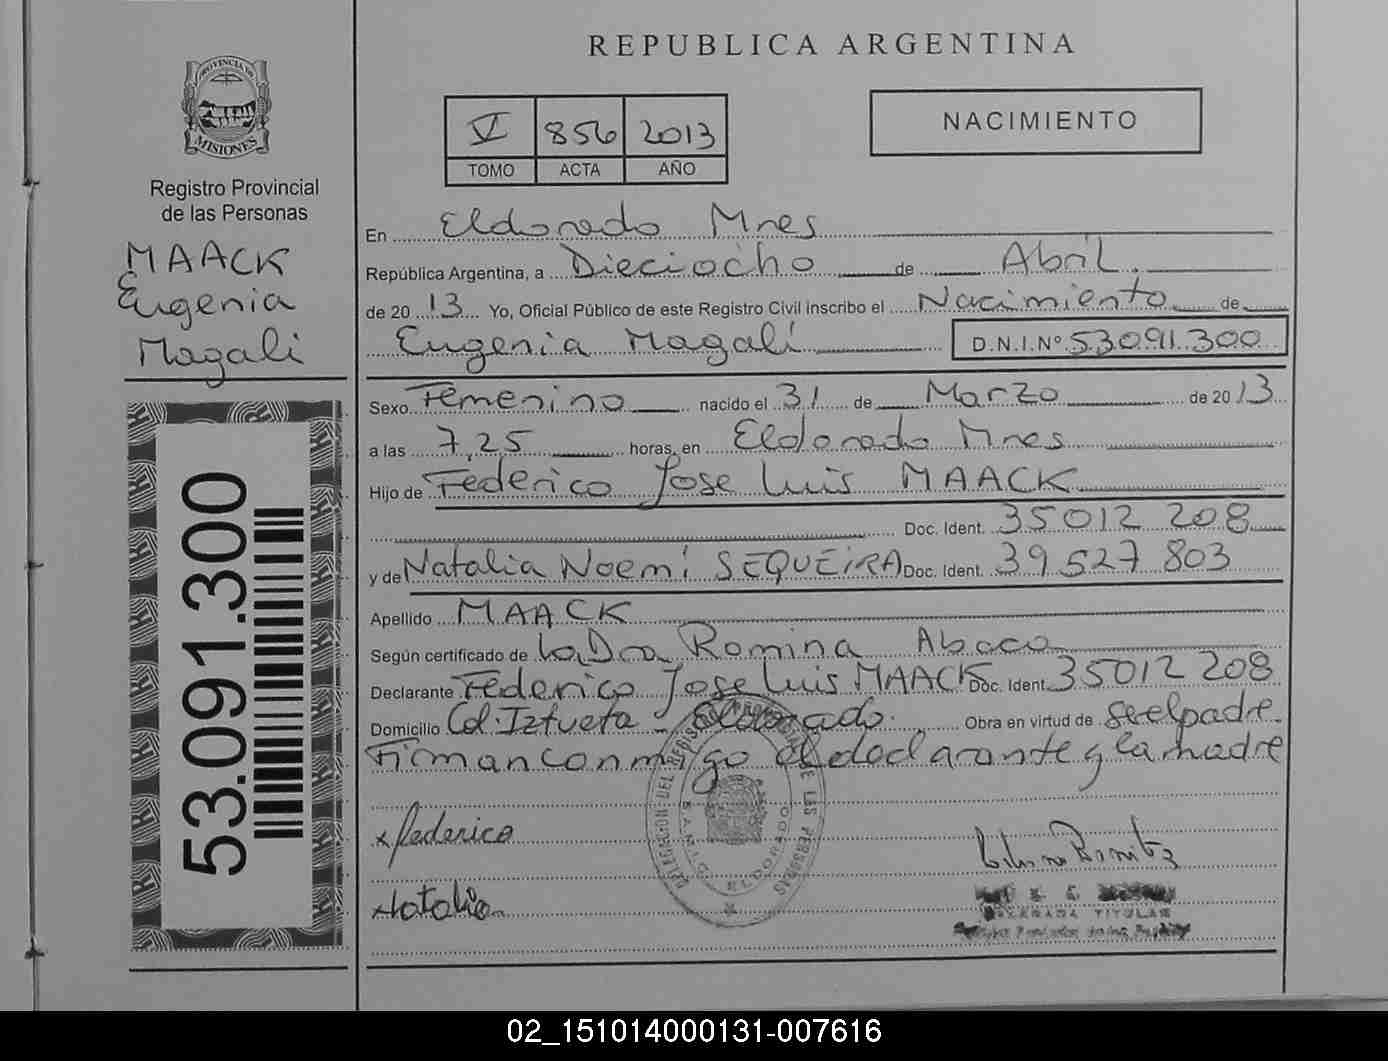 REPUBLICA ARGENTINA
PROVINCIA DE
MISIONES
Registro Provincial
de las Personas
MAACK
Eugenia
Magali
53.091.300
V 856 2013
TOMO ACTA AÑO
NACIMIENTO
En Eldorado Mnes
República Argentina, a Dieciocho de Abril
de 2013 Yo, Oficial Público de este Registro Civil inscribo el Nacimiento de
Eugenia Magalí D.N.I.Nº 53091.300
Sexo Femenino nacido el 31 de Marzo de 2013
a las 7,25 horas, en Eldorado Mnes
Hijo de Federico Jose Luis MAACK
Doc. Ident. 35012 208
y de Natalia Noemí SEQUEiRA Doc. Ident. 39527 803
Apellido MAACK
Según certificado de La Dra Romina Aboco
Declarante Federico Jose Luis MAACK Doc. Ident. 35012 208
Domicilio Col. Iztueta - Eldorado. Obra en virtud de ser el padre.
Firman conmigo el declarante y la madre
x federico
x Natalia
DELEGACION DEL REGISTRO PROVINCIAL DE LAS PERSONAS
ELDORADO
TITULAR
02_151014000131-007616